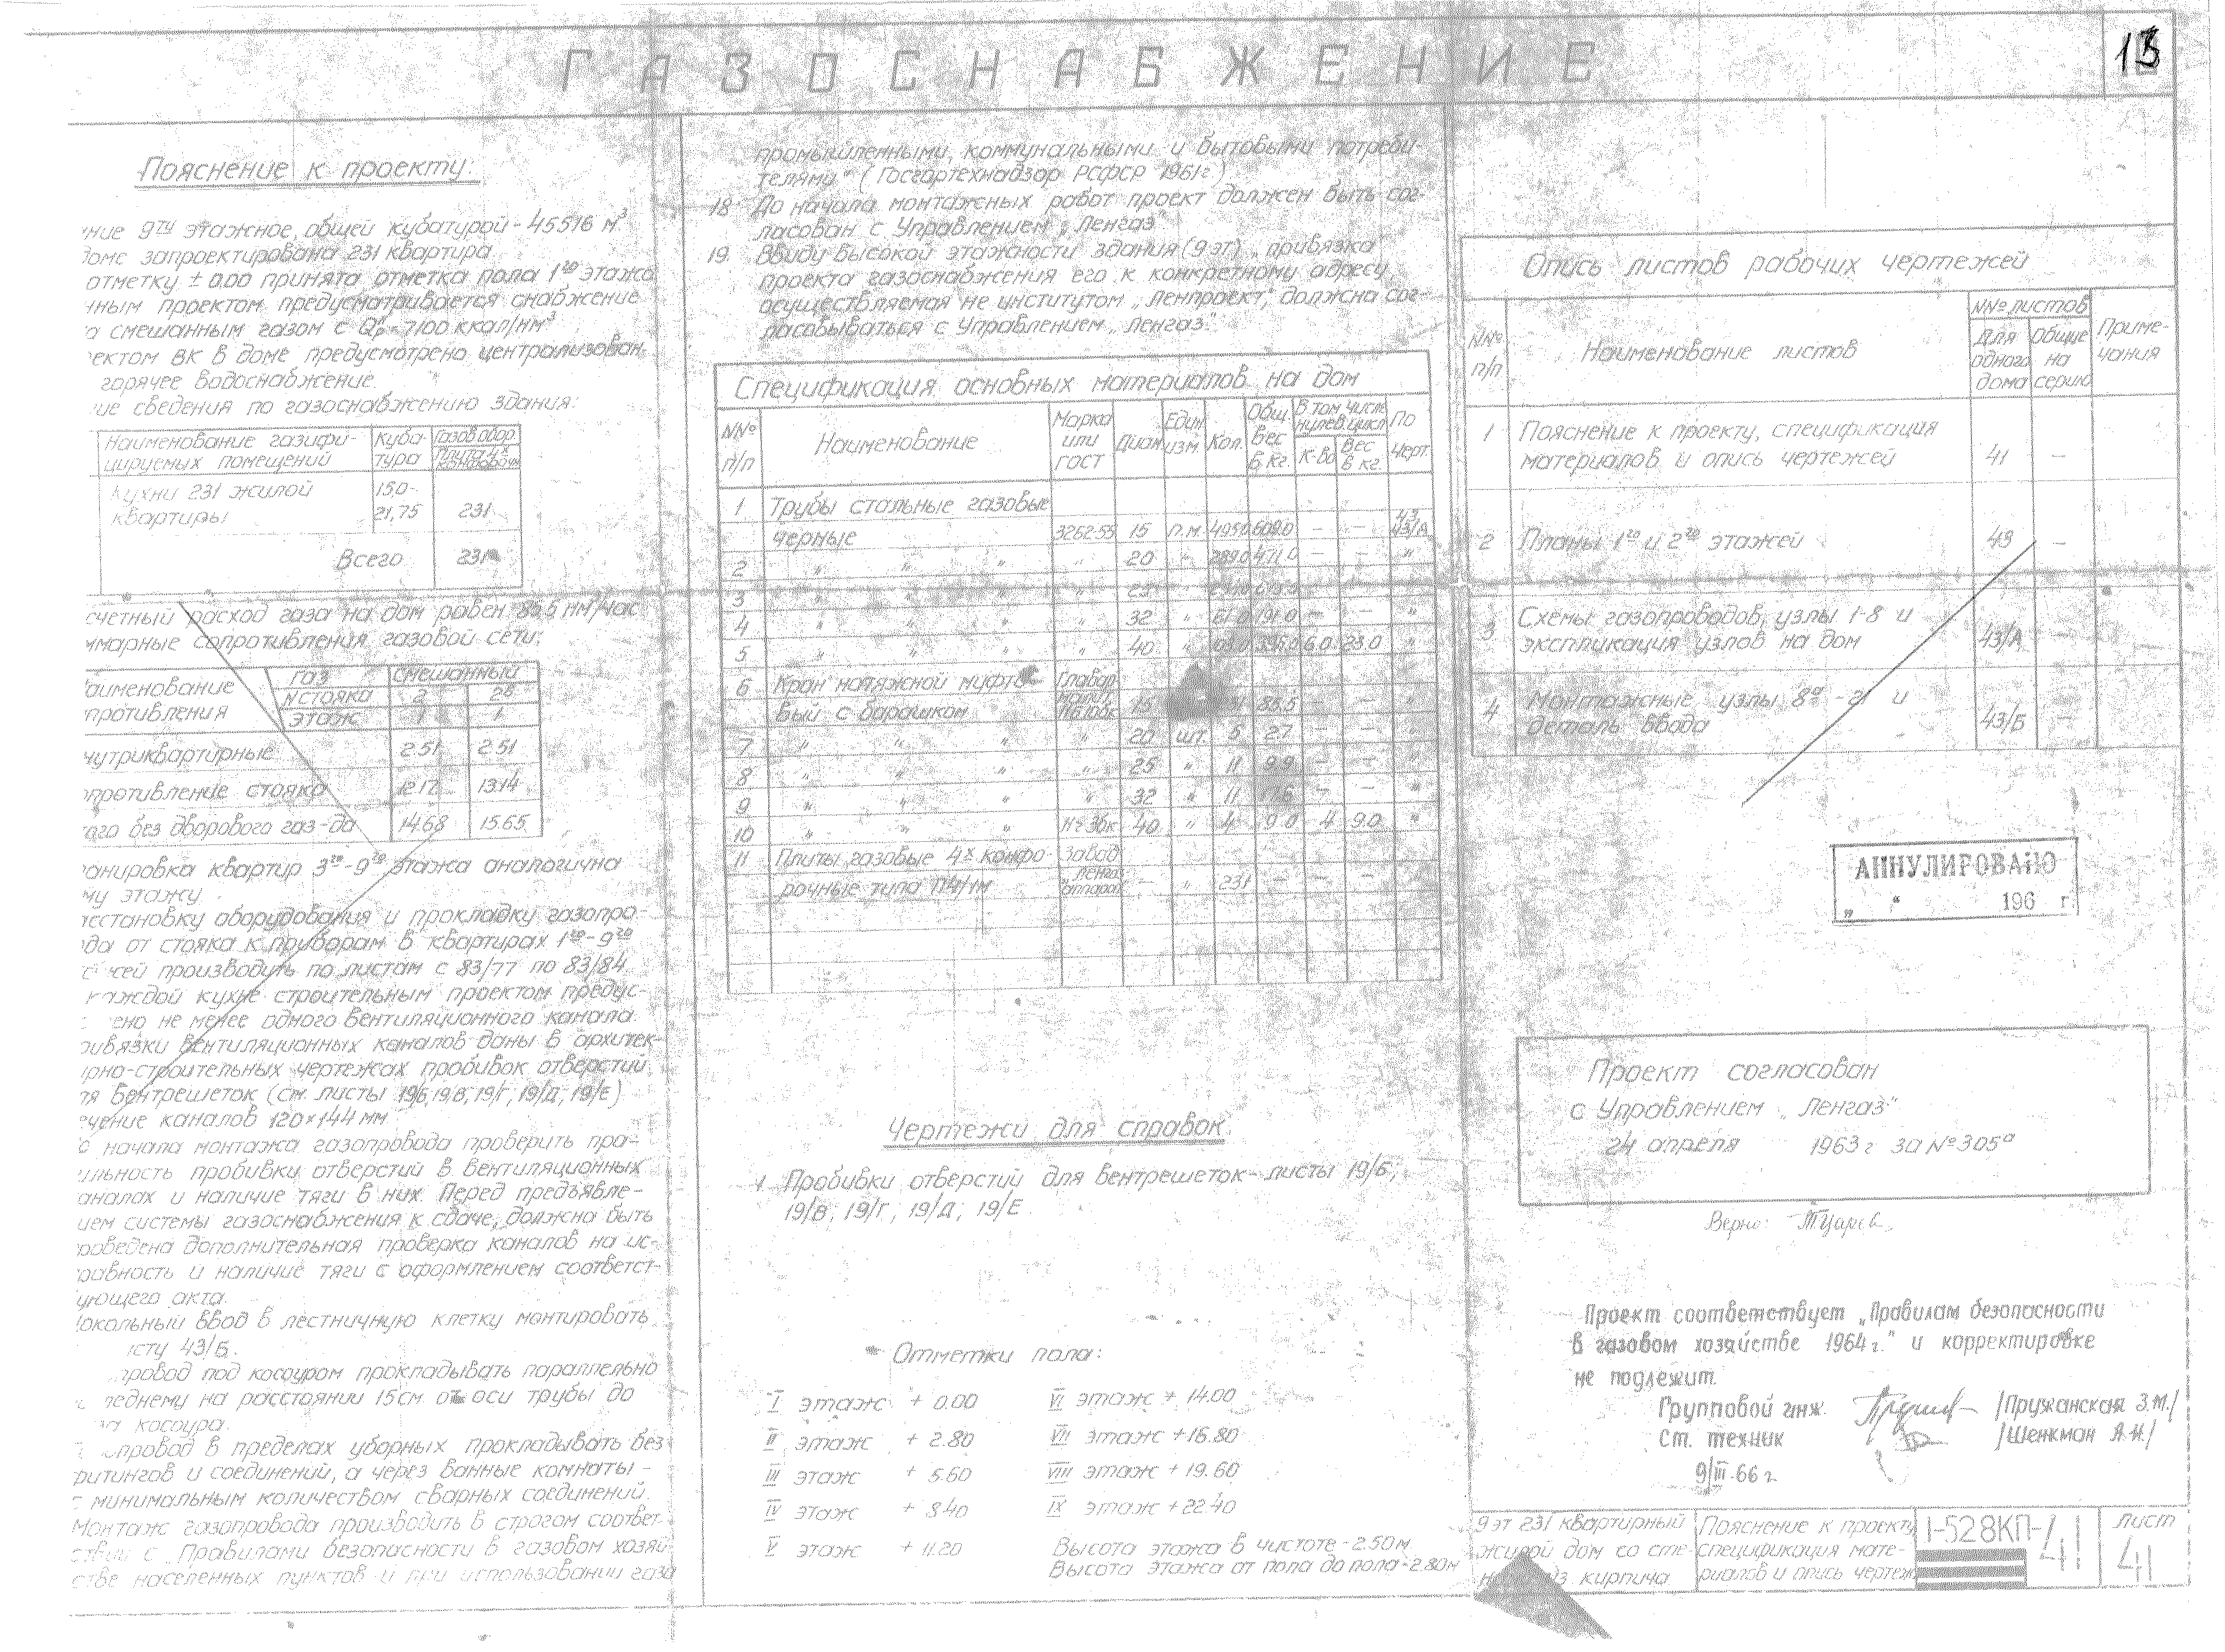 ГАЗОСНАБЖЕНИЕ
13
Пояснение к проекту.
ние 9ти этажное, общей кубатурой - 45516 м³
доме запроектирована 231 квартира
отметку ± 0.00 принята отметка пола 1го этажа
нным проектом предусматривается снабжение
смешанным газом с Qнр = 7100 ккал/нм³
ектом ВК в доме предусмотрено централизован-
горячее водоснабжение.
ие сведения по газоснабжению здания:
Наименование газифи- Куба- Газов. обор.
цируемых помещений тура Плита 4х конфорочн
Кухни 231 жилой 15,0-
квартиры 21,75 231
Всего 231
счетный расход газа на дом равен 85,5 нм³/час
ммарные сопротивления газовой сети:
аименование газ смешанный
противления N стояка 2 2б
этаж 1 1
нутриквартирные 2.51 2.51
опротивление стояка 12.17 13.14
того без дворового газ-да 14.68 15.65
анировка квартир 3го-9го этажа аналогична
му этажу.
сстановку оборудования и прокладку газопро-
да от стояка к приборам в квартирах 1го-9го
жей производить по листам с 83/77 по 83/84
каждой кухне строительным проектом предус-
ено не менее одного вентиляционного канала.
ривязки вентиляционных каналов даны в архитек-
рно-строительных чертежах пробивок отверстий
ля вентрешеток (см. листы 19/б, 19/в, 19/г, 19/д, 19/Е)
ечение каналов 120×144 мм
о начала монтажа газопровода проверить пра-
ильность пробивки отверстий в вентиляционных
аналах и наличие тяги в них. Перед предъявле-
ием системы газоснабжения к сдаче, должна быть
роведена дополнительная проверка каналов на ис-
равность и наличие тяги с оформлением соответст-
ующего акта.
окольный ввод в лестничную клетку монтировать
исту 43/Б.
провод под косоуром прокладывать параллельно
леднему на расстоянии 15 см. от оси трубы до
за косоура.
провод в пределах уборных прокладывать без
ритингов и соединений, а через ванные комнаты -
с минимальным количеством сварных соединений.
Монтаж газопровода производить в строгом соответ-
ствии с „Правилами безопасности в газовом хозяй-
стве населенных пунктов и при использовании газа
промышленными, коммунальными и бытовыми потреби-
телями" (Госгортехнадзор РСФСР 1961г.)
18. До начала монтажных работ проект должен быть сог-
ласован с Управлением „Ленгаз"
19. Ввиду высокой этажности здания (9 эт) „привязка"
проекта газоснабжения его к конкретному адресу,
осуществляемая не институтом „Ленпроект", должна сог-
ласовываться с Управлением „Ленгаз".
Спецификация основных материалов на дом
NNº п/п Наименование Марка или ГОСТ Диам. Един. изм. Кол. Общ. вес в кг. В том числе нулев. цикл К-во Вес в кг. По черт.
1 Трубы стальные газовые
черные 3262-55 15 п.м. 495.0 608.0 – – 43 43/А
2 „ „ „ „ 20 – 289.0 471.0 – – „
3 „ „ „ „ 25
4 „ „ „ „ 32 „ 61.0 191.0 – – „
5 „ „ „ „ 40 „ 6.0 23.0 „
6 Кран натяжной муфто- Главар-
вый с барашком 15 88,5 – – „
7 „ „ „ „ 20 шт. 5 2.7 – – „
8 „ „ „ „ 25 „ 11 9.9 – – „
9 „ „ „ „ 32 „ 11 17.6 – – „
10 „ „ „ 11ч3бк 40 „ 4 9.0 4 9.0 „
11 Плиты газовые 4х конфо- Завод
рочные типа П4/1м „Ленгаз аппарат" – „ 231 – – –
Чертежи для справок.
1. Пробивки отверстий для вентрешеток - листы 19/б;
19/в; 19/г; 19/д; 19/Е.
Отметки пола:
I этаж + 0.00 VI этаж + 14.00
II этаж + 2.80 VII этаж + 16.80
III этаж + 5.60 VIII этаж + 19.60
IV этаж + 8.40 IX этаж + 22.40
V этаж + 11.20 Высота этажа в чистоте - 2.50 м
Высота этажа от пола до пола - 2.80 м
Опись листов рабочих чертежей
NNº п/п Наименование листов NNº листов Для одного дома Общие на серию Приме- чания
1 Пояснение к проекту, спецификация
материалов и опись чертежей 41 –
2 Планы 1го и 2го этажей 43 –
3 Схемы газопроводов, узлы 1-8 и
экспликация узлов на дом 43/А –
4 Монтажные узлы 8а - 21 и
деталь ввода 43/Б –
АННУЛИРОВАНО
„ " 196 г.
Проект согласован
с Управлением „Ленгаз"
24 апреля 1963 г за Nº 305а
Верно:
Проект соответствует „Правилам безопасности
в газовом хозяйстве 1964 г." и корректировке
не подлежит.
Групповой инж. /Пружанская З.М./
Ст. техник /Шенкман А.И./
9/III-66 г.
9 эт 231 квартирный
жилой дом со сте-
кирпича
Пояснение к проекту
спецификация мате-
риалов и опись чертеж
1-528КП-41
лист
41